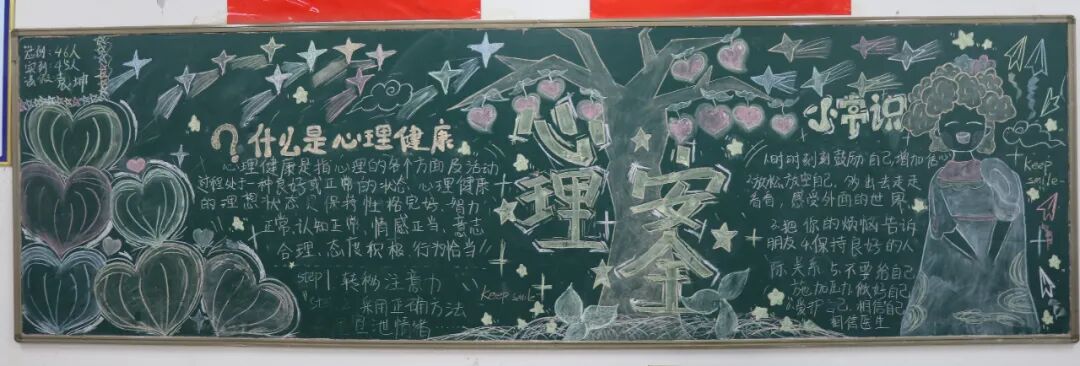 应到：46人
实到：45人
?什么是心理健康
心理健康是指心理的各个方面及活动
过程处于一种良好或正常的状态、心理健康
的理想状态是保持性格完好、智力
正常、认知正常、情感适当、意志
合理、态度积极、行为恰当！
step1 转移注意力
采用正确方法
宣泄情绪
心理
安全
keep smile
小常识
1.时时刻刻鼓励自己增加信心
2.放松放空自己，多出去走走
看看，感受外面的世界
3.把你的烦恼告诉
朋友 4.保持良好的人
际关系 5.不要给自己
施加压力做好自己
爱护自己，相信自己
相信医生
Keep
smile~